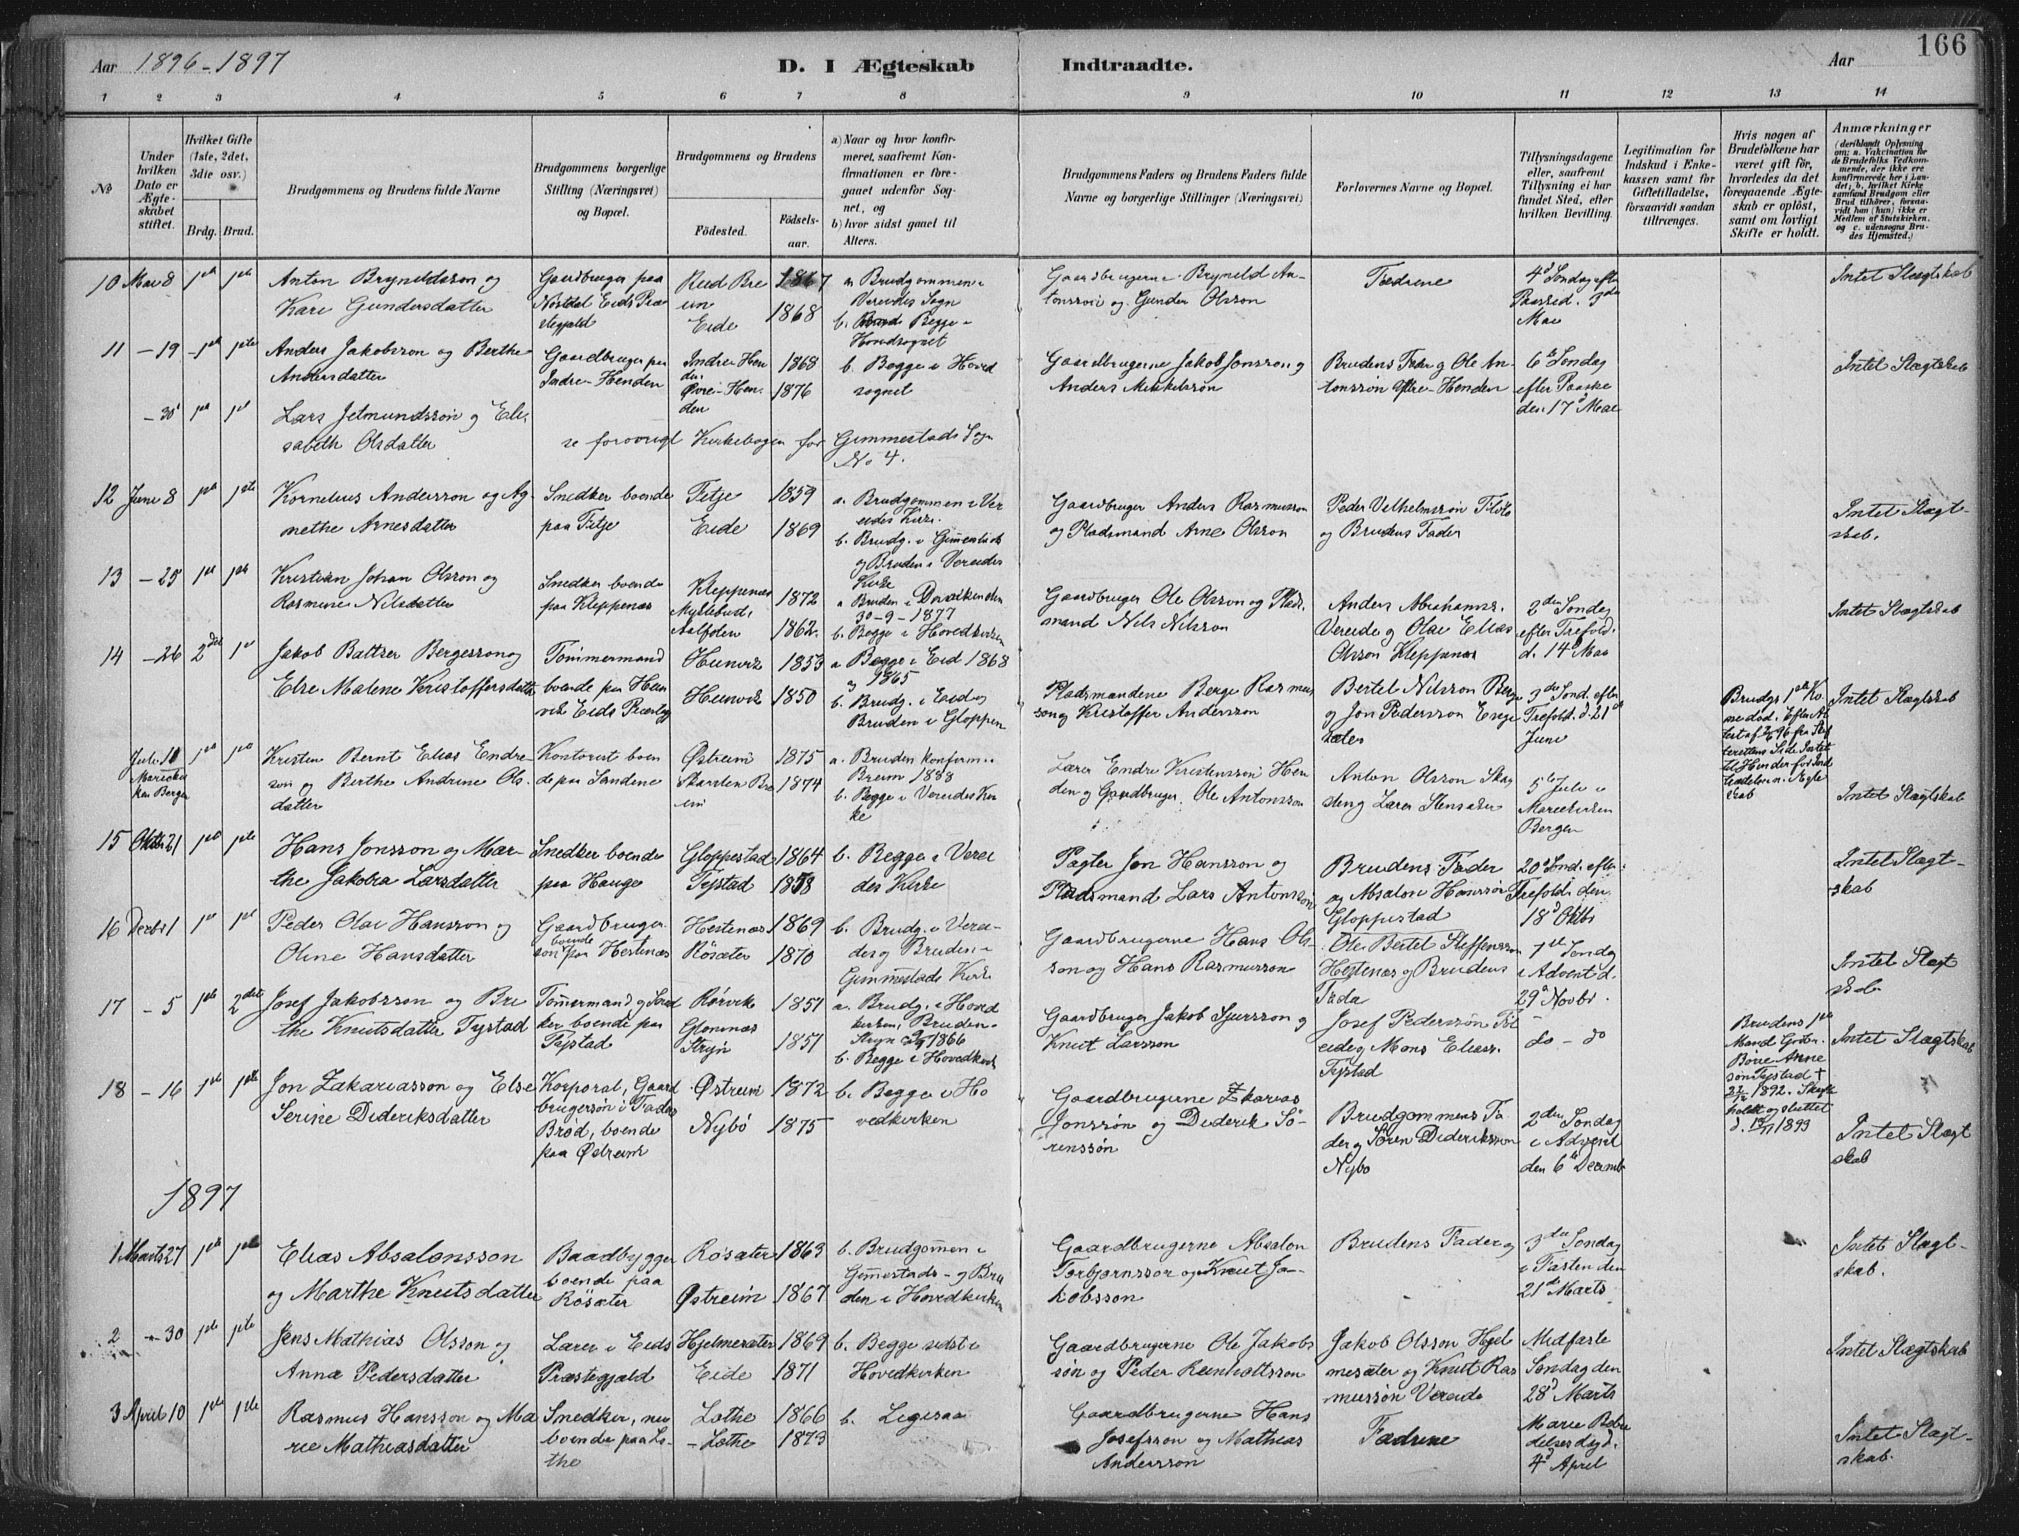 Aar 1896-1897
D. I Ægteskab Indtraadte.
Aar
166
1 2 3 4 5 6 7 8 9 10 11 12 13 14
No
Under hvilken Dato er Ægteskabet stiftet.
Hvilket Gifte (1ste, 2det, 3die osv.)
Brdg. Brud.
Brudgommens og Brudens fulde Navne
Brudgommens borgerlige Stilling (Næringsvei) og Bopæl.
Brudgommens og Brudens
Födested.
Födselsaar.
a) Naar og hvor konfirmeret, saafremt Konfirmationen er foregaaet udenfor Sognet, og
b) hvor sidst gaaet til Alters.
Brudgommens Faders og Brudens Faders fulde Navne og borgerlige Stillinger (Næringsvei)
Forlovernes Navne og Bopæl.
Tillysningsdagene eller, saafremt Tillysning ei har fundet Sted, efter hvilken Bevilling.
Legitimation for Indskud i Enkekassen samt for Giftetilladelse, forsaavidt saadan tiltrænges.
Hvis nogen af Brudefolkene har været gift för, hvorledes da det foregaaende Ægteskab er oplöst, samt om lovligt Skifte er holdt.
Anmærkninger (deriblandt Oplysning om: a. Vakcination for de Brudefolks Vedkommende, der ikke ere konfirmerede her i Landet; b. hvilket Kirkesamfund Brudgom eller Brud tilhörer, forsaavidt han (hun) ikke er Medlem af Statskirken, og c. udensogns Brudes Hjemsted.)
10 Mai 8
Anton Bryneldsson og
Kari Gundersdatter
Gaardbruger paa
Nøstdal Eids Præ
stegjæld
Rud Bre
um
Eide
1867
1868
a Brudgommen i
Vereides Sogn
b. Begge i
Hovedsognet
Gaardbrugerne Bryneld An-
tonsson og Gunder Olsson
Fædrene
4d Søndag efter
Mai
Intet Slægtskab
11 -19
Anders Jakobsson og Berthe
Andersdatter
Gaardbruger paa
Indre-Henden
Indre Hen
den
Øvre-Hen-
den
1868
1876
b. Begge i Hoved
sognet
Gaardbrugerne Jakob Jonsson og
Anders Mikkelsøn
Brudens Fader og Ole An-
tonssøn Ytre-Henden
6te Søndag
efter Paaske
den 17d Mai
Intet Slægtskab
-30
Lars Jetmundssøn og Eli-
sabeth Olsdatter
se forøvrigt Kirkebogen for Gimmestads Sogn
No 4.
12 Juni 8
Kornelius Andersson og Ag-
nethe Arnesdatter
Snedker boende
paa Fitje
Fitje
Eide
1859
1869
a. Brudgommen i Ver
eides Kirke.
b. Brudg. i Gimmestads
og Bruden i Vereides
Kirke
Gaardbruger Anders Rasmusson
og Pladsmand Arne Olsson
Peder Velhelmssøn
og Brudens Fader
Intet Slægt-
skab.
13 -25
Kristian Johan Olsson og
Rasmine Nilsdatter
Snedker boende
paa Kleppenæs
Kleppenæs
Myklebust,
Aalfoten
1872
1862.
a Bruden i Daviken den
30-9-1877
b. Begge i Hovedkirken
Gaardbruger Ole Olsson og Plads-
mand Nils Nilsson
Anders Abrahams.
Vereide og Olai Elias
Olsson Kleppenæs
2den Søndag
efter Trefold.
d. 14d
Intet Slægtskab
14 -26 2det
Jakob Baltser Bergesson og
Else Malene Kristoffersdatter
Tømmermand
boende paa Heun
vik Eids Præsteg
Heunvik
Heunvik
1853
1850
a Begge i Eid 1868
og 1865
b. Brudg. i Eid og
Bruden i Gloppen
Pladsmandene Berge Rasmus
son og Kristoffer Andersson
Bertel Nilsson Berge
og Jon Pedersson Enge
3de Sønd. efter
Trefold. d. 21de
Juni
Brudgs 1ste Ko
ne død.
Intet Slægtskab
Juli 11
Mariekir
ken Bergen
Kristen Bernt Elias Endre-
son og Berthe Andrine Ols-
datter
Kontorist boen
de paa Sandene
Østreim
Skarsten Bre
im
1875
1874
a. Bruden konfirm. i
Breim 1888
b. Begge i Vereides Kir
ke
Lærer Endre Kristenssøn Hen
den og Gaardbruger Ole Antonsson
Anton Olsson
den og Lærer
5te Juli i
Mariekirken
Bergen
Intet Slægtskab
15 Oktbr 21
Hans Jonsson og Mar-
the Jakoba Larsdatter
Snedker boende
paa Hauge
Gloppestad
Tystad
1864
1858
b. Begge i Verei
des Kirke
Pagter Jon Hansson og
Pladsmand Lars Antonssøn
Brudens Fader
og Absalon Hanssøn
Gloppestad
20d Sønd. efter
Trefold. den
18d Oktbr
Intet Slægt-
skab
16 Decbr 1
Peder Olai Hansson og
Oline Hansdatter
Gaardbruger-
søn boende paa Hestenæs
Hestenæs
Røsæter
1869
1870
b. Brudg. i Verei-
des og Bruden i
Gimmestads Kirke
Gaardbrugerne Hans Ols-
son og Hans Rasmusson
Ole Bertel Steffensson
Hestenæs og Brudens
Fader
1ste Søndag
i Advent d.
29d Novbr.
Intet Slægt
skab
17 -5 2det
Josef Jakobsson og Bri
the Knutsdatter Tystad
Tømmermand og Sned
ker boende paa
Tystad
Rørvik
Glomnæs
Stryn
1851
1851
a. Brudg. i Hoved
kirken, Bruden i
Stryn 1866
b. Begge i Hovedkirk
Gaardbruger Jakob Sjursson og
Knut Larsson
Josef Pederssøn
eide og Mons Eliass.
Tystad
do - do
Brudens 1ste
Mand
Anne
son Tystad †
1892. Skifte
holdt og sluttet
1893
Intet Slægtskab
18 -16
Jon Zakariasson og Else
Serine Dideriksdatter
Korporal, Gaard
brugersøn i Faders
Brød, boende
paa Østreim
Østreim
Nybø
1872
1875
b. Begge i Ho
vedkirken
Gaardbrugerne Zkarias
Jonssøn og Diderik Sö-
renssøn
Brudgommens Fa-
der og Sören Dideriksson
Nybø
2den Søndag
i Advent
den 6te Decemb
Intet Slægt
skab
1897
1 Marts 27
Elias Absalonsson
og Marthe Knutsdatter
Baadbygger
boende paa
Røsæter
Røsæter
Østreim
1863
1867
b. Brudgommen i
Gimmestads- og Bru
den i Hovedkirken
Gaardbrugerne Absalon
Torbjørnssøn og Knut Ja-
kobsson
Brudens Fader og
3die Søndag
i Fasten den
21de Marts
Intet Slægt-
skab.
2 -30
Jens Mathias Olsson og
Anna Pedersdatter
Lærer i Eids
Præstegjæld
Hjelmesæter
Eide
1869
1871
b. Begge sidst i
Hovedkirken
Gaardbrugerne Ole Jakobs
søn og Peder Reinholtsson
Jakob Olsson Hjel
mesæter og Knut Ras
mussøn Vereide
Midfaste
Søndag den
28d Marts
Intet Slægtskab
3 April 10
Rasmus Hansson og Ma
rie Mathiasdatter
Snedker, nu
boende paa Lo-
the
Lothe
-Lothe
1866
1873
b. Ligesaa
Gaardbrugerne Hans
Josefsson og Mathias
Andersson
Fædrene
Marie Bebu
delses dag d.
4d April
Intet Slægt-
skab.